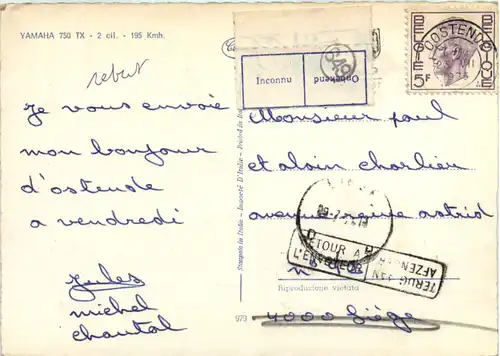 YAMAHA 750 TX - 2 cil. - 195 Kmh.
rebut
Je vous envoie
mon bonjour
d'ostende
a vendredi
Jules
michel
chantal
Inconnu
Onbekend
1649
BELGIE BELGIQUE
5F
OOSTENDE
Monsieur paul
et alain charlier
avenue reine astrid
RETOUR A
L'ENVOYEUR
TERUG AAN
AFZENDER
4000 liège
Stampato in Italia - Importé D'Italie - Printed in Italy
Riproduzione vietata
979